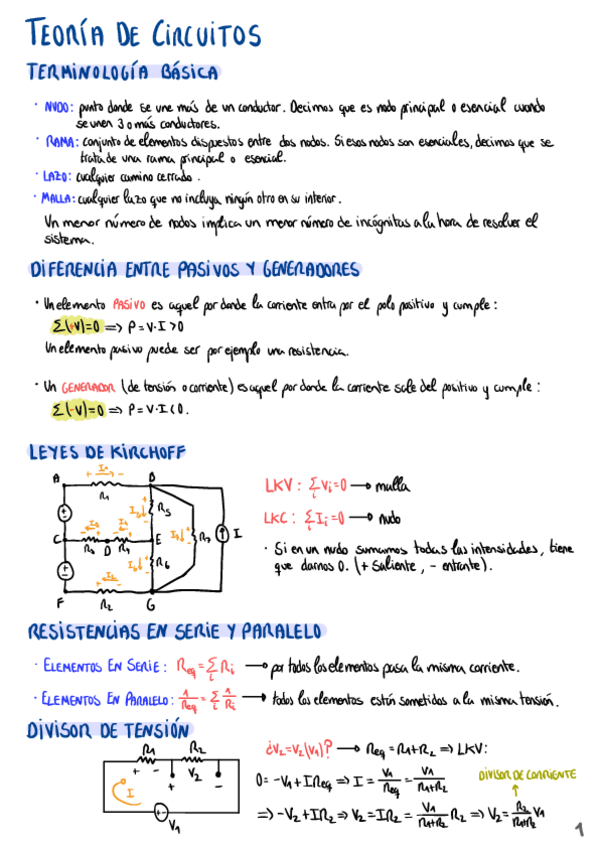 TEORÍA DE CIRCUITOS
TERMINOLOGÍA BÁSICA
· NUDO: punto donde se une más de un conductor. Decimos que es nodo principal o esencial cuando
se unen 3 o más conductores.
· RAMA: conjunto de elementos dispuestos entre dos nodos. Si esos nodos son esenciales, decimos que se
trata de una rama principal o esencial.
· LAZO: cualquier camino cerrado.
· MALLA: cualquier lazo que no incluya ningún otro en su interior.
Un menor número de nodos implica un menor número de incógnitas a la hora de resolver el
sistema.
DIFERENCIA ENTRE PASIVOS Y GENERADORES
· Un elemento PASIVO es aquel por donde la corriente entra por el polo positivo y cumple:
Σ(-V)=0 => P=V·I>0
Un elemento pasivo puede ser por ejemplo una resistencia.
· Un GENERADOR (de tensión o corriente) es aquel por donde la corriente sale del positivo y cumple:
Σ(-V)=0 => P=V·I<0.
LEYES DE KIRCHOFF
A R1 B
C R3 D R4 E R5 R7 I
R6
F R2 G
LKV: Σ Vi=0 → malla
LKC: Σ Ii=0 → nudo
· Si en un nudo sumamos todas las intensidades, tiene
que darnos 0. (+ saliente, - entrante).
RESISTENCIAS EN SERIE Y PARALELO
· ELEMENTOS EN SERIE: Req=Σ Ri → por todos los elementos pasa la misma corriente.
· ELEMENTOS EN PARALELO: 1/Req=Σ 1/Ri → todos los elementos están sometidos a la misma tensión.
DIVISOR DE TENSIÓN
R1 R2
+ - + V2 -
I
V1
¿V2=V2(V1)? → Req=R1+R2 => LKV:
0=-V1+IReq => I=V1/Req=V1/R1+R2
DIVISOR DE CORRIENTE
=> -V2+IR2 => V2=IR2=V1/R1+R2 R2 => V2=R2/R1+R2 V1
1